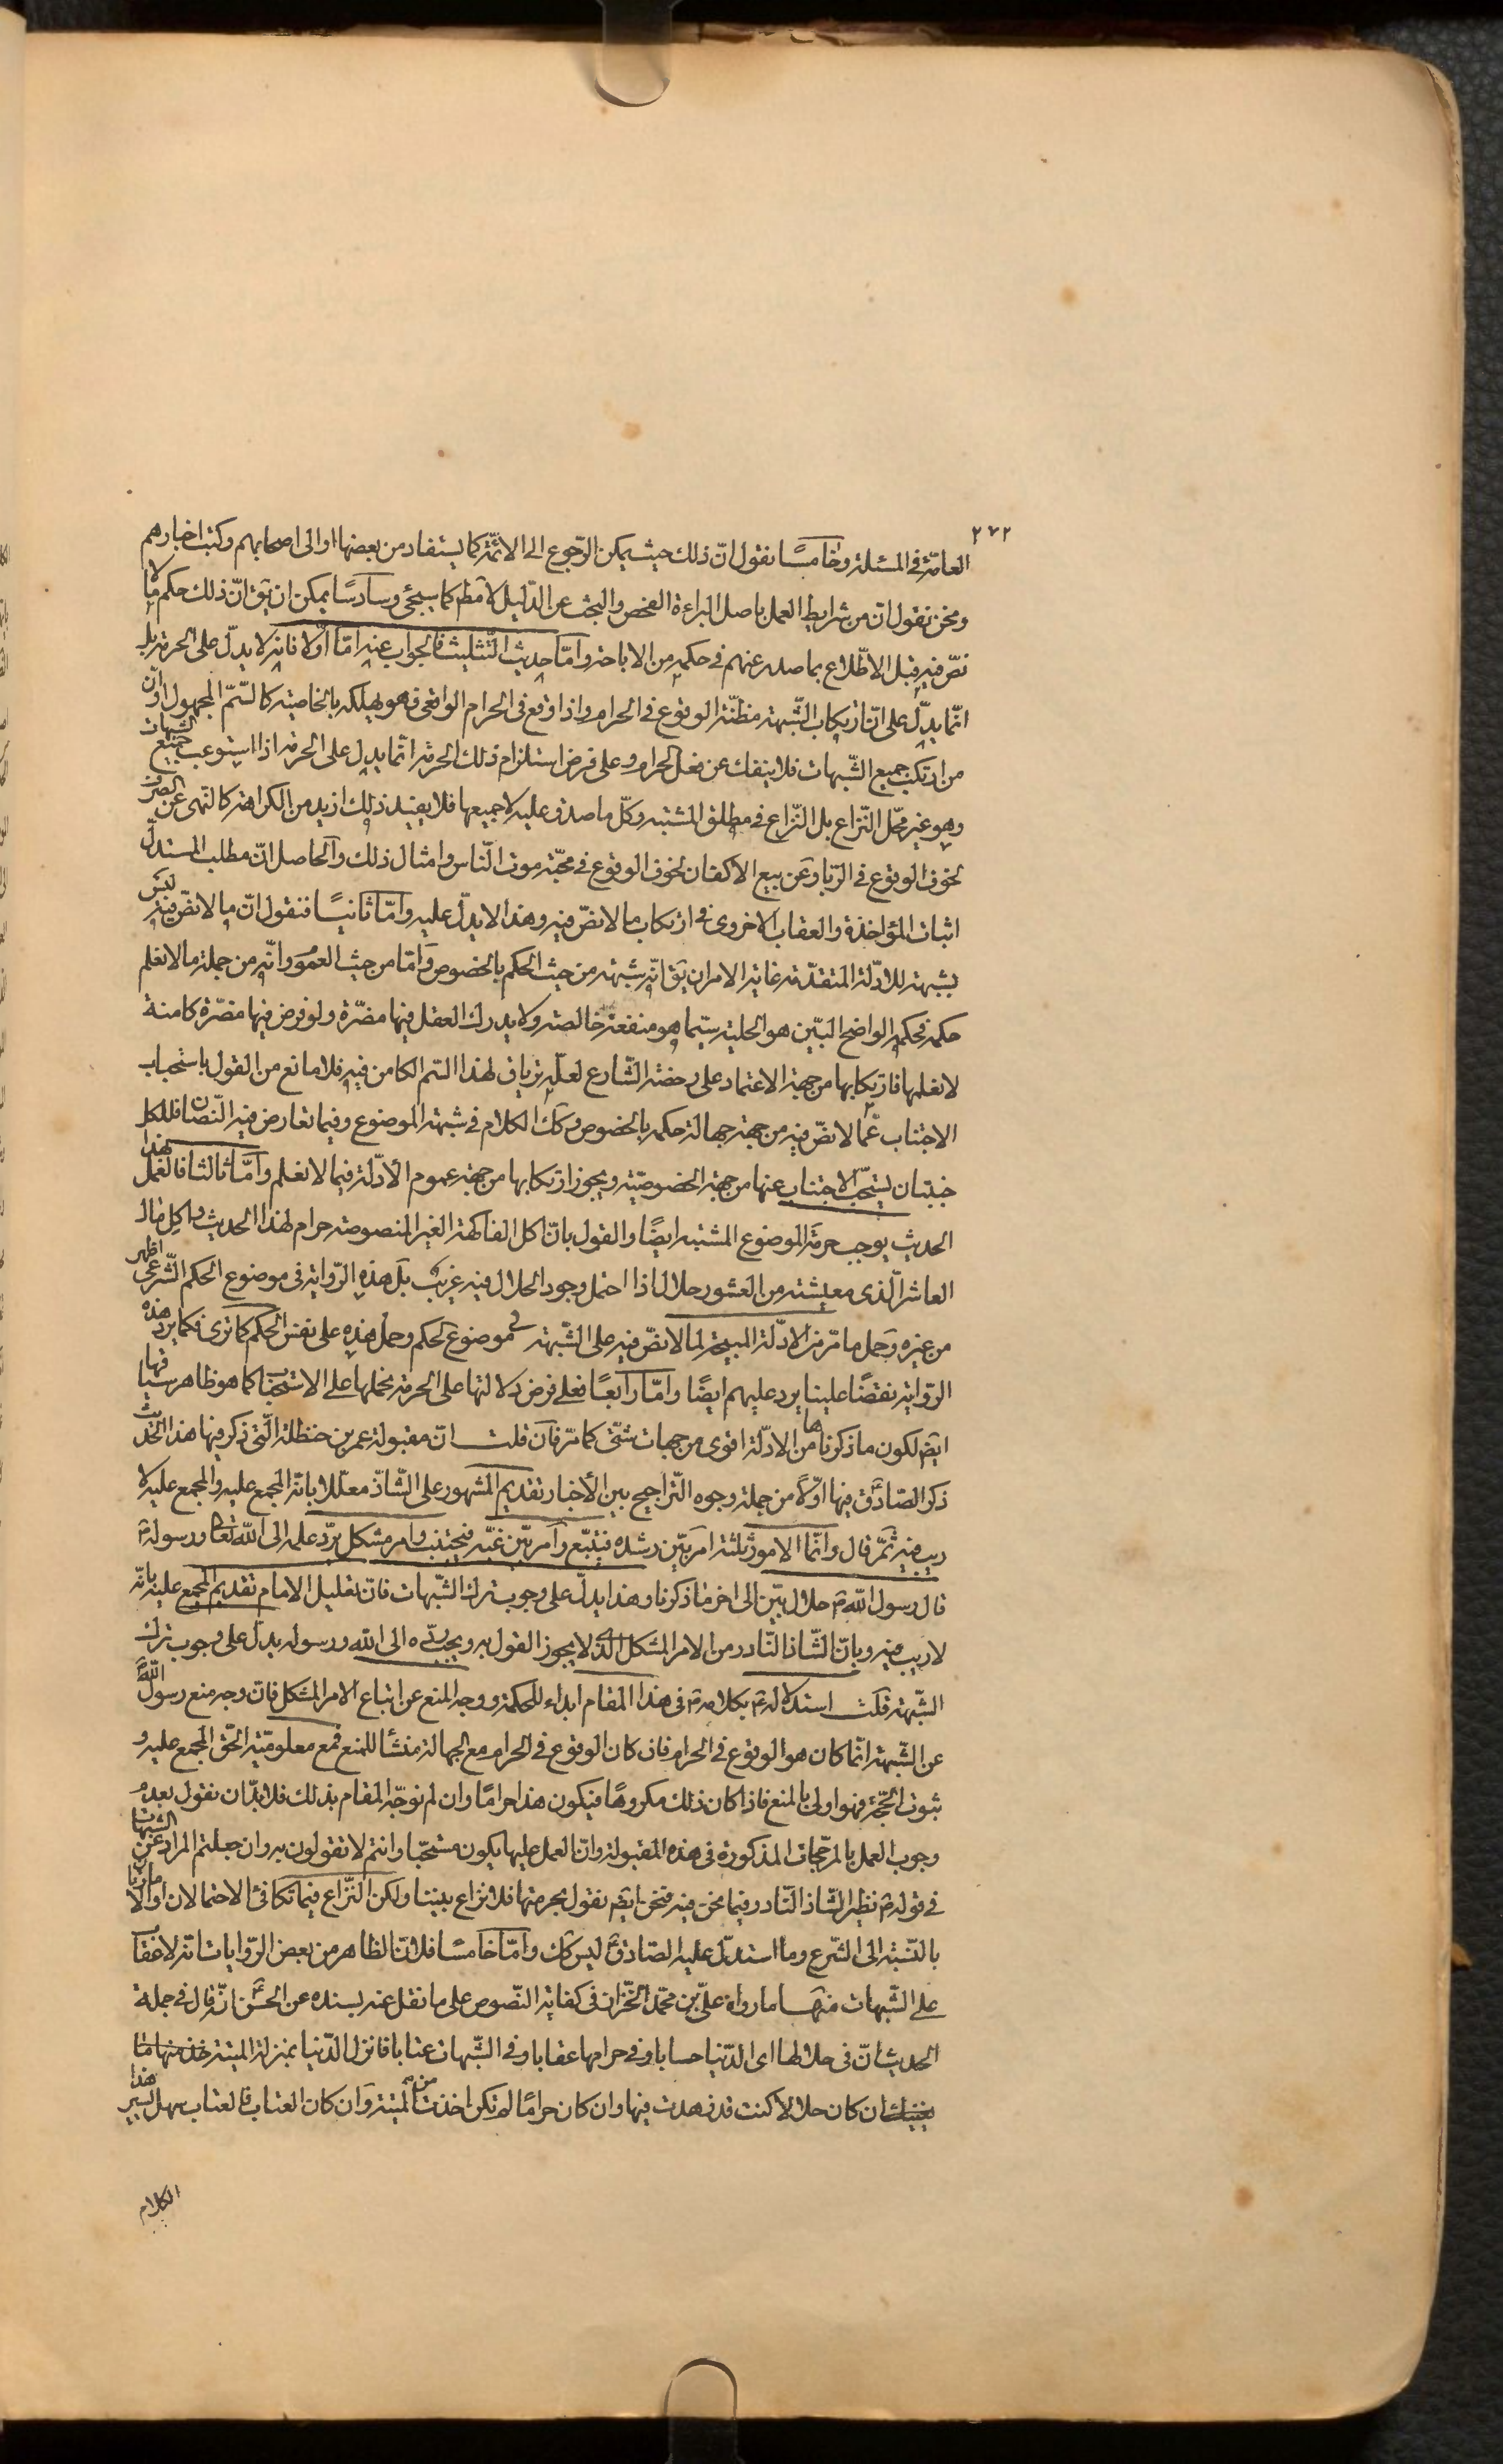 ٢٧٢
العامّة فى المسئلة وخامسًا نقول انّ ذلك حيث يمكن الرّجوع الى الائمّة كما يستفاد من بعضها او الى اصحابهم وكتب اخبارهم
ونحن نقول ان من شرايط العمل باصل البراءة الفحص والبحث عن الدّليل لا مط كما سيجئ وسادسًا يمكن ان يق انّ ذلك حكم ما لا
نصّ فيه قبل الاطّلاع بما صدر عنهم فى حكمه من الاباحة وامّا حديث التّثليث فالجواب عنه امّا اوّلا فانه لا يدلّ على الحرمة بل
انّما يدلّ على انّ ارتكاب الشّبهة مظنّة الوقوع فى الحرام واذا وقع فى الحرام الواقعى فهو يهلكه بالخاصية كالسّمّ المجهول او انّ
من ارتكب جميع الشّبهات فلا ينفك عن فعل الحرام وعلى فرض استلزام ذلك الحرمة انّما يدل على الحرمة اذا استوعب جميع الشبهات
وهو غير محلّ النّزاع بل النّزاع فى مطلق المشتبه وكلّ ما صدق عليه لا جميعها فلا يفيد ذلك ازيد من الكراهة كالنّهى عن الصّرف
لخوف الوقوع فى الرّبا وعن بيع الاكفان لخوف الوقوع فى محبّة موت النّاس وامثال ذلك والحاصل انّ مطلب المستدلّ
اثبات المؤاخذة والعقاب الاخروى فى ارتكاب ما لا نصّ فيه وهذا لا يدلّ عليه وامّا ثانيًا فنقول انّ ما لا نصّ فيه ليس
بشبهة للادّلة المتقدّمة غاية الامر ان يق انّه شبهة من حيث الحكم بالخصوص وامّا من حيث العموم وانّه من جملة ما لا نعلم
حكمه فحكمه الواضح البيّن هو الحلية سيّما هو منفعة خالصة ولا يدرك العقل فيها مضرّة ولو فرض فيها مضرّة كامنة
لا نعلمها فارتكابها من جهة الاعتماد على رخصة الشّارع لعلّه ترياق لهذا السّم الكامن فيه فلا مانع من القول باستحباب
الاجتناب عمّا لا نصّ فيه من جهة جهالة حكمه بالخصوص وكك الكلام فى شبهة الموضوع وفيما تعارض فيه النّصّان فللكل
جنبتان يستحبّ الاجتناب عنها من جهة الخصوصيّة ويجوز ارتكابها من جهة عموم الادّلة فيما لا نعلم وامّا ثالثا فالعمل بهذا
الحديث يوجب حرمة الموضوع المشتبه ايضًا والقول بانّ اكل الفاكهة الغير المنصوصة حرام لهذا الحديث واكل مال
العاشر الّذى معيشته من العشور حلال اذا احتمل وجود الحلال فيه غريب بل هذه الرّواية فى موضوع الحكم الشّرعى اظهر
من غيره وحمل ما مرّ من الادّلة المبيحة لما لا نصّ فيه على الشّبهة فى موضوع الحكم وحمل هذه على نفس الحكم كما ترى فكما يرد هذه
الرّواية نقضًا علينا يرد عليهم ايضًا وامّا رابعًا فعلى فرض دلالتها على الحرمة نحملها على الاستحباب كما هو ظاهر سياقها
ايضا لكون ما ذكرناها من الادّلة اقوى من جهات شتّى كما مرّ فان قلت انّ مقبولة عمر بن حنظلة الّتى ذكر فيها هذا الحديث
ذكر الصّادق فيها اوّلا من جملة وجوه التّراجيح بين الأخبار تقديم المشهور على الشّاذ معلّلا بانّ المجمع عليه والمجمع عليه لا
ريب فيه ثمّ قال وانّما الامور ثلثة امر بيّن رشده فيتبع وامر بيّن غيّه فيجتنب وامر مشكل يردّ علمه الى اللّه تعالى ورسوله ص
قال رسول اللّه ص حلال بيّن الى اخر ما ذكرنا وهذا يدلّ على وجوب ترك الشّبهات فانّ تعليل الامام تقديم المجمع عليه بانّه
لا ريب فيه وبانّ الشّاذ النّادر من الامر المشكل الّذى لا يجوز القول به ويجب ردّه الى اللّه ورسوله يدلّ على وجوب ترك
الشّبهة قلت استدلاله ع بكلامه ص فى هذا المقام ابداء للحكمة ووجه المنع عن اتباع الامر المشكل فانّ وجه منع رسول اللّه ص
عن الشّبهة انّما كان هو الوقوع فى الحرام فان كان الوقوع فى الحرام مع الجهالة منشأ للمنع فمع معلوميّة الحقّ المجمع عليه و
ثبوت الحجّة فهو اولى بالمنع فاذا كان ذلك مكروهًا فيكون هذا حرامًا وان لم نوجّه المقام بذلك فلا بدّ ان نقول بعدم
وجوب العمل بالمرجّحات المذكورة فى هذه المقبولة وانّ العمل عليها يكون مستحبّا وانتم لا تقولون به وان جعلتم المراد عن الشبهات
فى قوله ص نظير الشّاذ النّادر فيما نحن فيه فنحن ايضا نقول بحرمتها فلا نزاع بيننا ولكن النّزاع فيما تكافئ الاحتمالان او الامارتان
بالنّسبة الى الشّرع وما استدلّ عليه الصّادق ليس كك وامّا خامسًا فلانّ الظاهر من بعض الرّوايات انّه لا عقاب
على الشّبهات منها ما رواه علىّ بن محمّد الخزّان فى كفاية النّصوص على ما نقل عنه بسنده عن الحسن ع انّه قال فى جملة
الحديث انّ فى حلالها اى الدّنيا حسابا وفى حرامها عقابا وفى الشّبهات عتابا فانزل الدّنيا بمنزلة الميتة خذ منها ما
يكفيك ان كان حلالا كنت قد زهدت فيها وان كان حرامًا لم تكن اخذت من الميتة وان كان العتاب فالعتاب سهل يسير هذا
الكلام